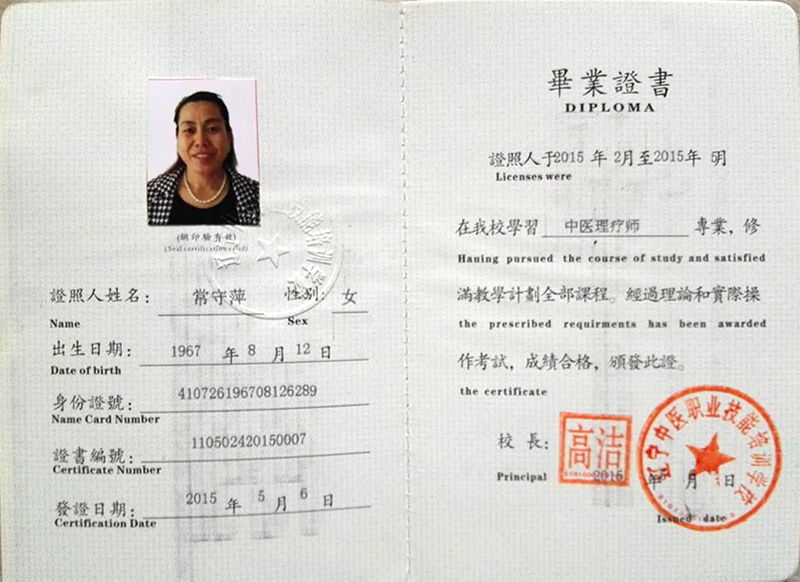 (鋼印驗有效)
(Seal certification valid)
證照人姓名: 常守萍 性别: 女
Name Sex
出生日期: 1967 年 8 月 12 日
Date of birth
身份證號: 410726196708126289
Name Card Number
證書編號: 110502420150007
Certificate Number
發證日期: 2015 年 5 月 6 日
Certification Date
畢業證書
DIPLOMA
證照人于2015 年 2月至2015年 5月
Licenses were
在我校學習 中医理疗师 專業，修
Hauing pursued the course of study and satisfied
滿教學計劃全部課程。經過理論和實際操
the prescribed requirments has been awarded
作考試，成績合格，頒發此證。
the certificate
校 長: 高洁
Principal 2015 年 月 日
Issued date
辽宁中医职业技能培训学校